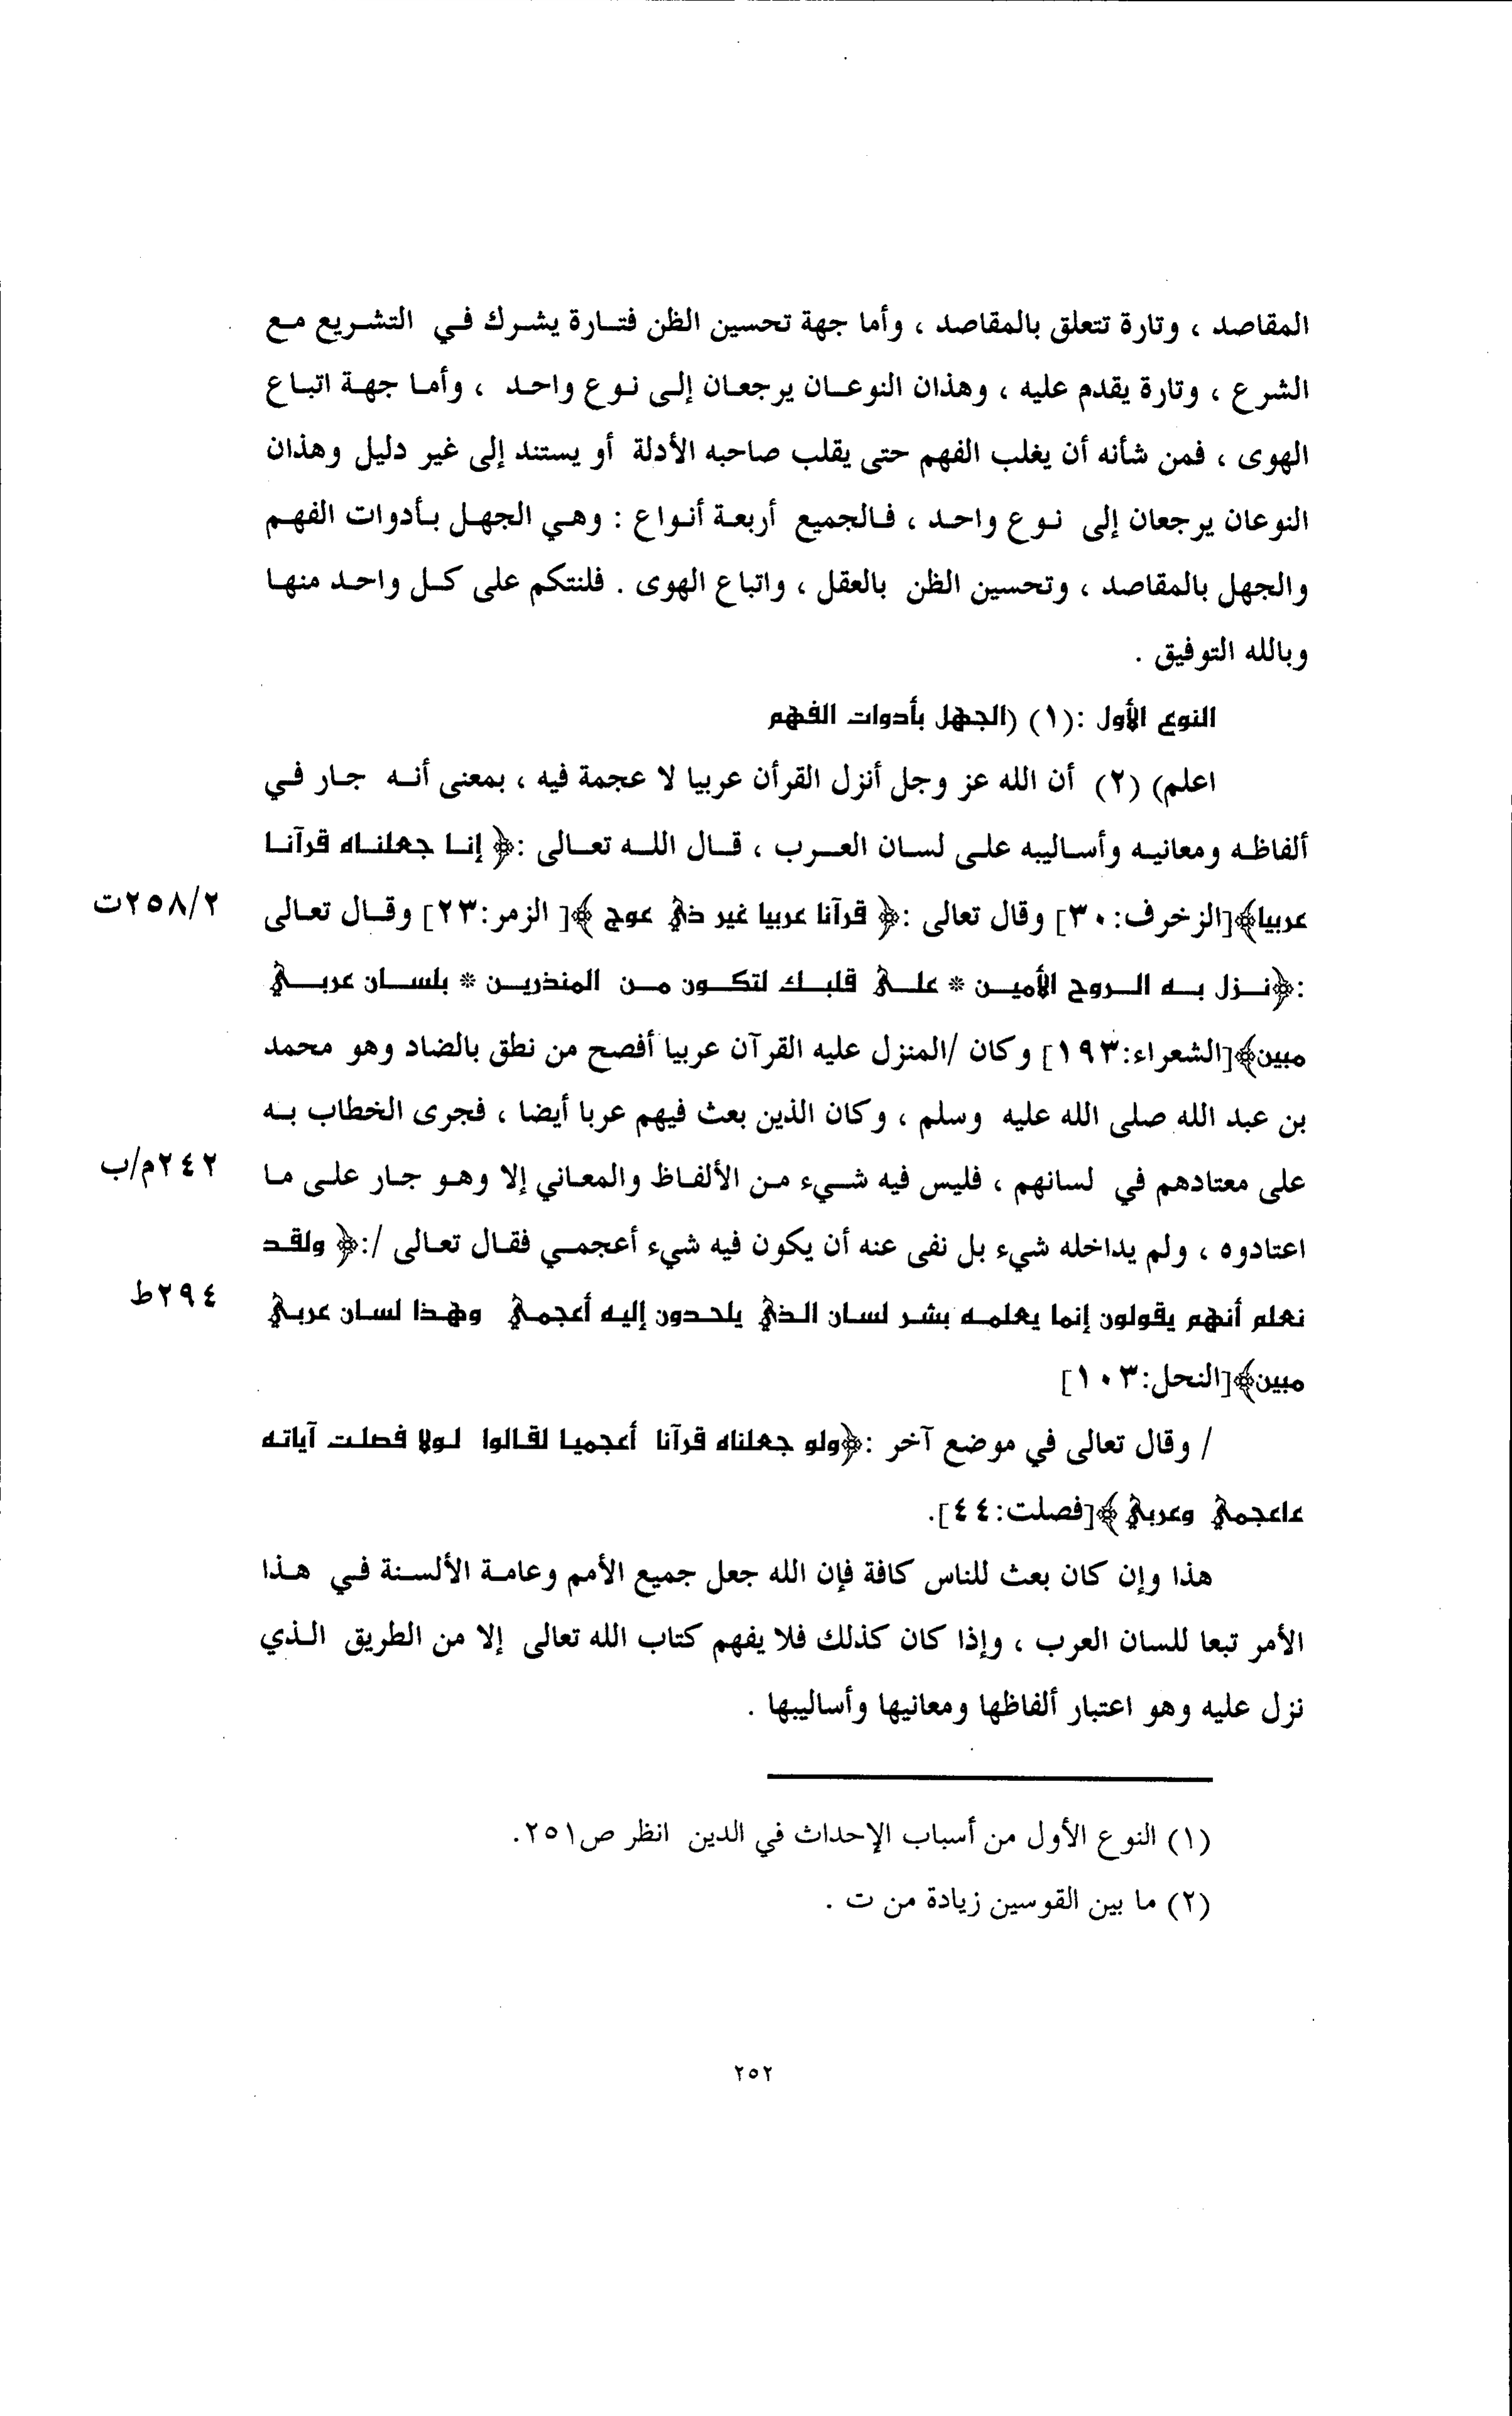 المقاصد ، وتارة تتعلق بالمقاصد ، وأما جهة تحسين الظن فتارة يشرك في التشريع مع
الشرع ، وتارة يقدم عليه ، وهذان النوعان يرجعان إلى نوع واحد ، وأما جهة اتباع
الهوى ، فمن شأنه أن يغلب الفهم حتى يقلب صاحبه الأدلة أو يستند إلى غير دليل وهذان
النوعان يرجعان إلى نوع واحد ، فالجميع أربعة أنواع : وهي الجهل بأدوات الفهم
والجهل بالمقاصد ، وتحسين الظن بالعقل ، واتباع الهوى . فلنتكم على كل واحد منها
وبالله التوفيق .
النوع الأول :(١) (الجهل بأدوات الفهم
اعلم) (٢) أن الله عز وجل أنزل القرأن عربيا لا عجمة فيه ، بمعنى أنه جار في
ألفاظه ومعانيه وأساليبه على لسان العرب ، قال الله تعالى :﴿ إنا جعلناه قرآنا
عربيا﴾[الزخرف:٣٠] وقال تعالى :﴿ قرآنا عربيا غير ذي عوج ﴾[ الزمر:٢٣] وقال تعالى ٢/٢٥٨ت
:﴿نزل به الروح الأمين * على قلبك لتكون من المنذرين * بلسان عربي
مبين﴾[الشعراء:١٩٣] وكان /المنزل عليه القرآن عربيا أفصح من نطق بالضاد وهو محمد
بن عبد الله صلى الله عليه وسلم ، وكان الذين بعث فيهم عربا أيضا ، فجرى الخطاب به
على معتادهم في لسانهم ، فليس فيه شيء من الألفاظ والمعاني إلا وهو جار على ما ٢٤٢م/ب
اعتادوه ، ولم يداخله شيء بل نفى عنه أن يكون فيه شيء أعجمي فقال تعالى /:﴿ ولقد
نعلم أنهم يقولون إنما يعلمه بشر لسان الذي يلحدون إليه أعجمي وهذا لسان عربي ٢٩٤ط
مبين﴾[النحل:١٠٣]
/ وقال تعالى في موضع آخر :﴿ولو جعلناه قرآنا أعجميا لقالوا لولا فصلت آياته
ءاعجمي وعربي ﴾[فصلت:٤٤].
هذا وإن كان بعث للناس كافة فإن الله جعل جميع الأمم وعامة الألسنة في هذا
الأمر تبعا للسان العرب ، وإذا كان كذلك فلا يفهم كتاب الله تعالى إلا من الطريق الذي
نزل عليه وهو اعتبار ألفاظها ومعانيها وأساليبها .
(١) النوع الأول من أسباب الإحداث في الدين انظر ص٢٥١.
(٢) ما بين القوسين زيادة من ت .
٢٥٢